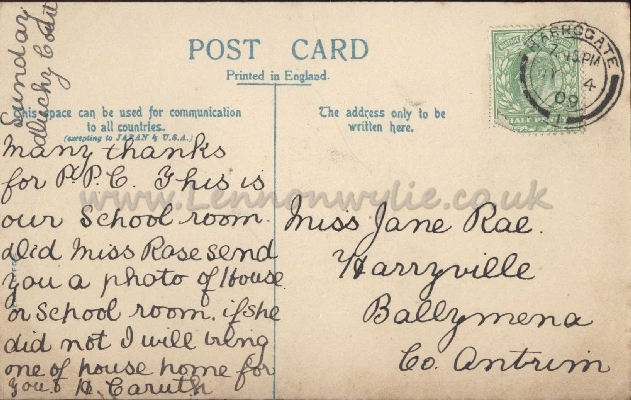 Sunday
POST CARD
Printed in England.
This space can be used for communication
to all countries.
(excepting to JAPAN & U.S.A.)
The address only to be
written here.
HARROGATE
7.45PM
4
09
HALF PENNY
Many thanks
for P.P.C. This is
our School room.
Did Miss Rose send
you a photo of House
or School room. if she
did not I will bring
one of house home for
you. H. Caruth
Miss Jane Rae.
Harryville
Ballymena
Co. Antrim
www.Lennonwylie.co.uk